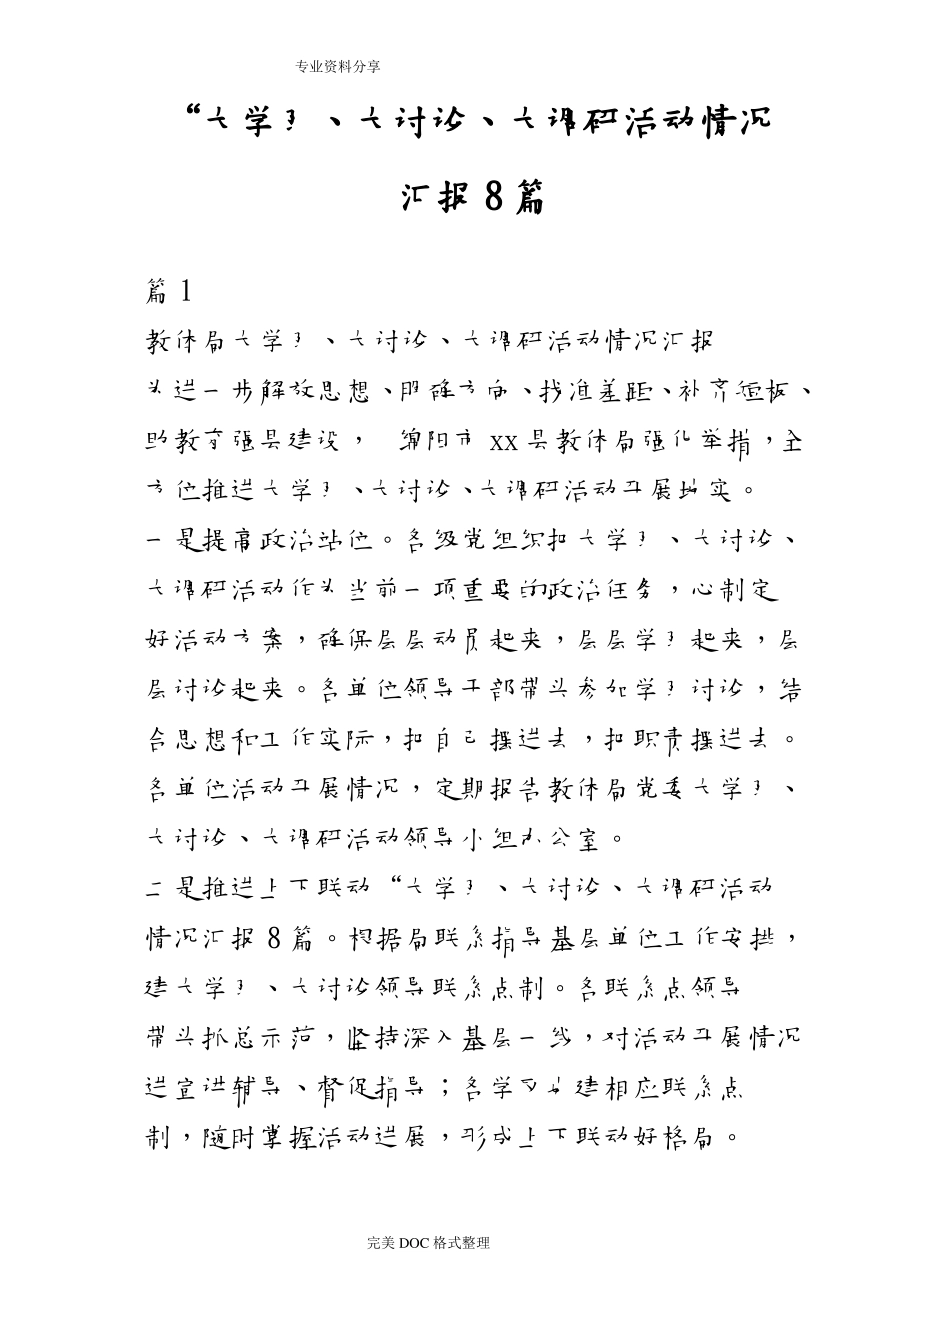 专业资料分享
“大学习、大讨论、大调研活动情况
汇报 8 篇
篇 1
教体局大学习、大讨论、大调研活动情况汇报
为进一步解放思想、明确方向、找准差距、补齐短板、
助教育强县建设， 绵阳市 xx 县教体局强化举措，全
方位推进大学习、大讨论、大调研活动开展扎实。
一是提高政治站位。各级党组织把大学习、大讨论、
大调研活动作为当前一项重要的政治任务，心制定
好活动方案，确保层层动员起来，层层学习起来，层
层讨论起来。各单位领导干部带头参加学习讨论，结
合思想和工作实际，把自己摆进去，把职责摆进去。
各单位活动开展情况，定期报告教体局党委大学习、
大讨论、大调研活动领导小组办公室。
二是推进上下联动“大学习、大讨论、大调研活动
情况汇报 8 篇。根据局联系指导基层单位工作安排，
建大学习、大讨论领导联系点制。各联系点领导
带头抓总示范，坚持深入基层一线，对活动开展情况
进宣讲辅导、督促指导；各学也建相应联系点
制，随时掌握活动进展，形成上下联动好格局。
完美 DOC 格式整理